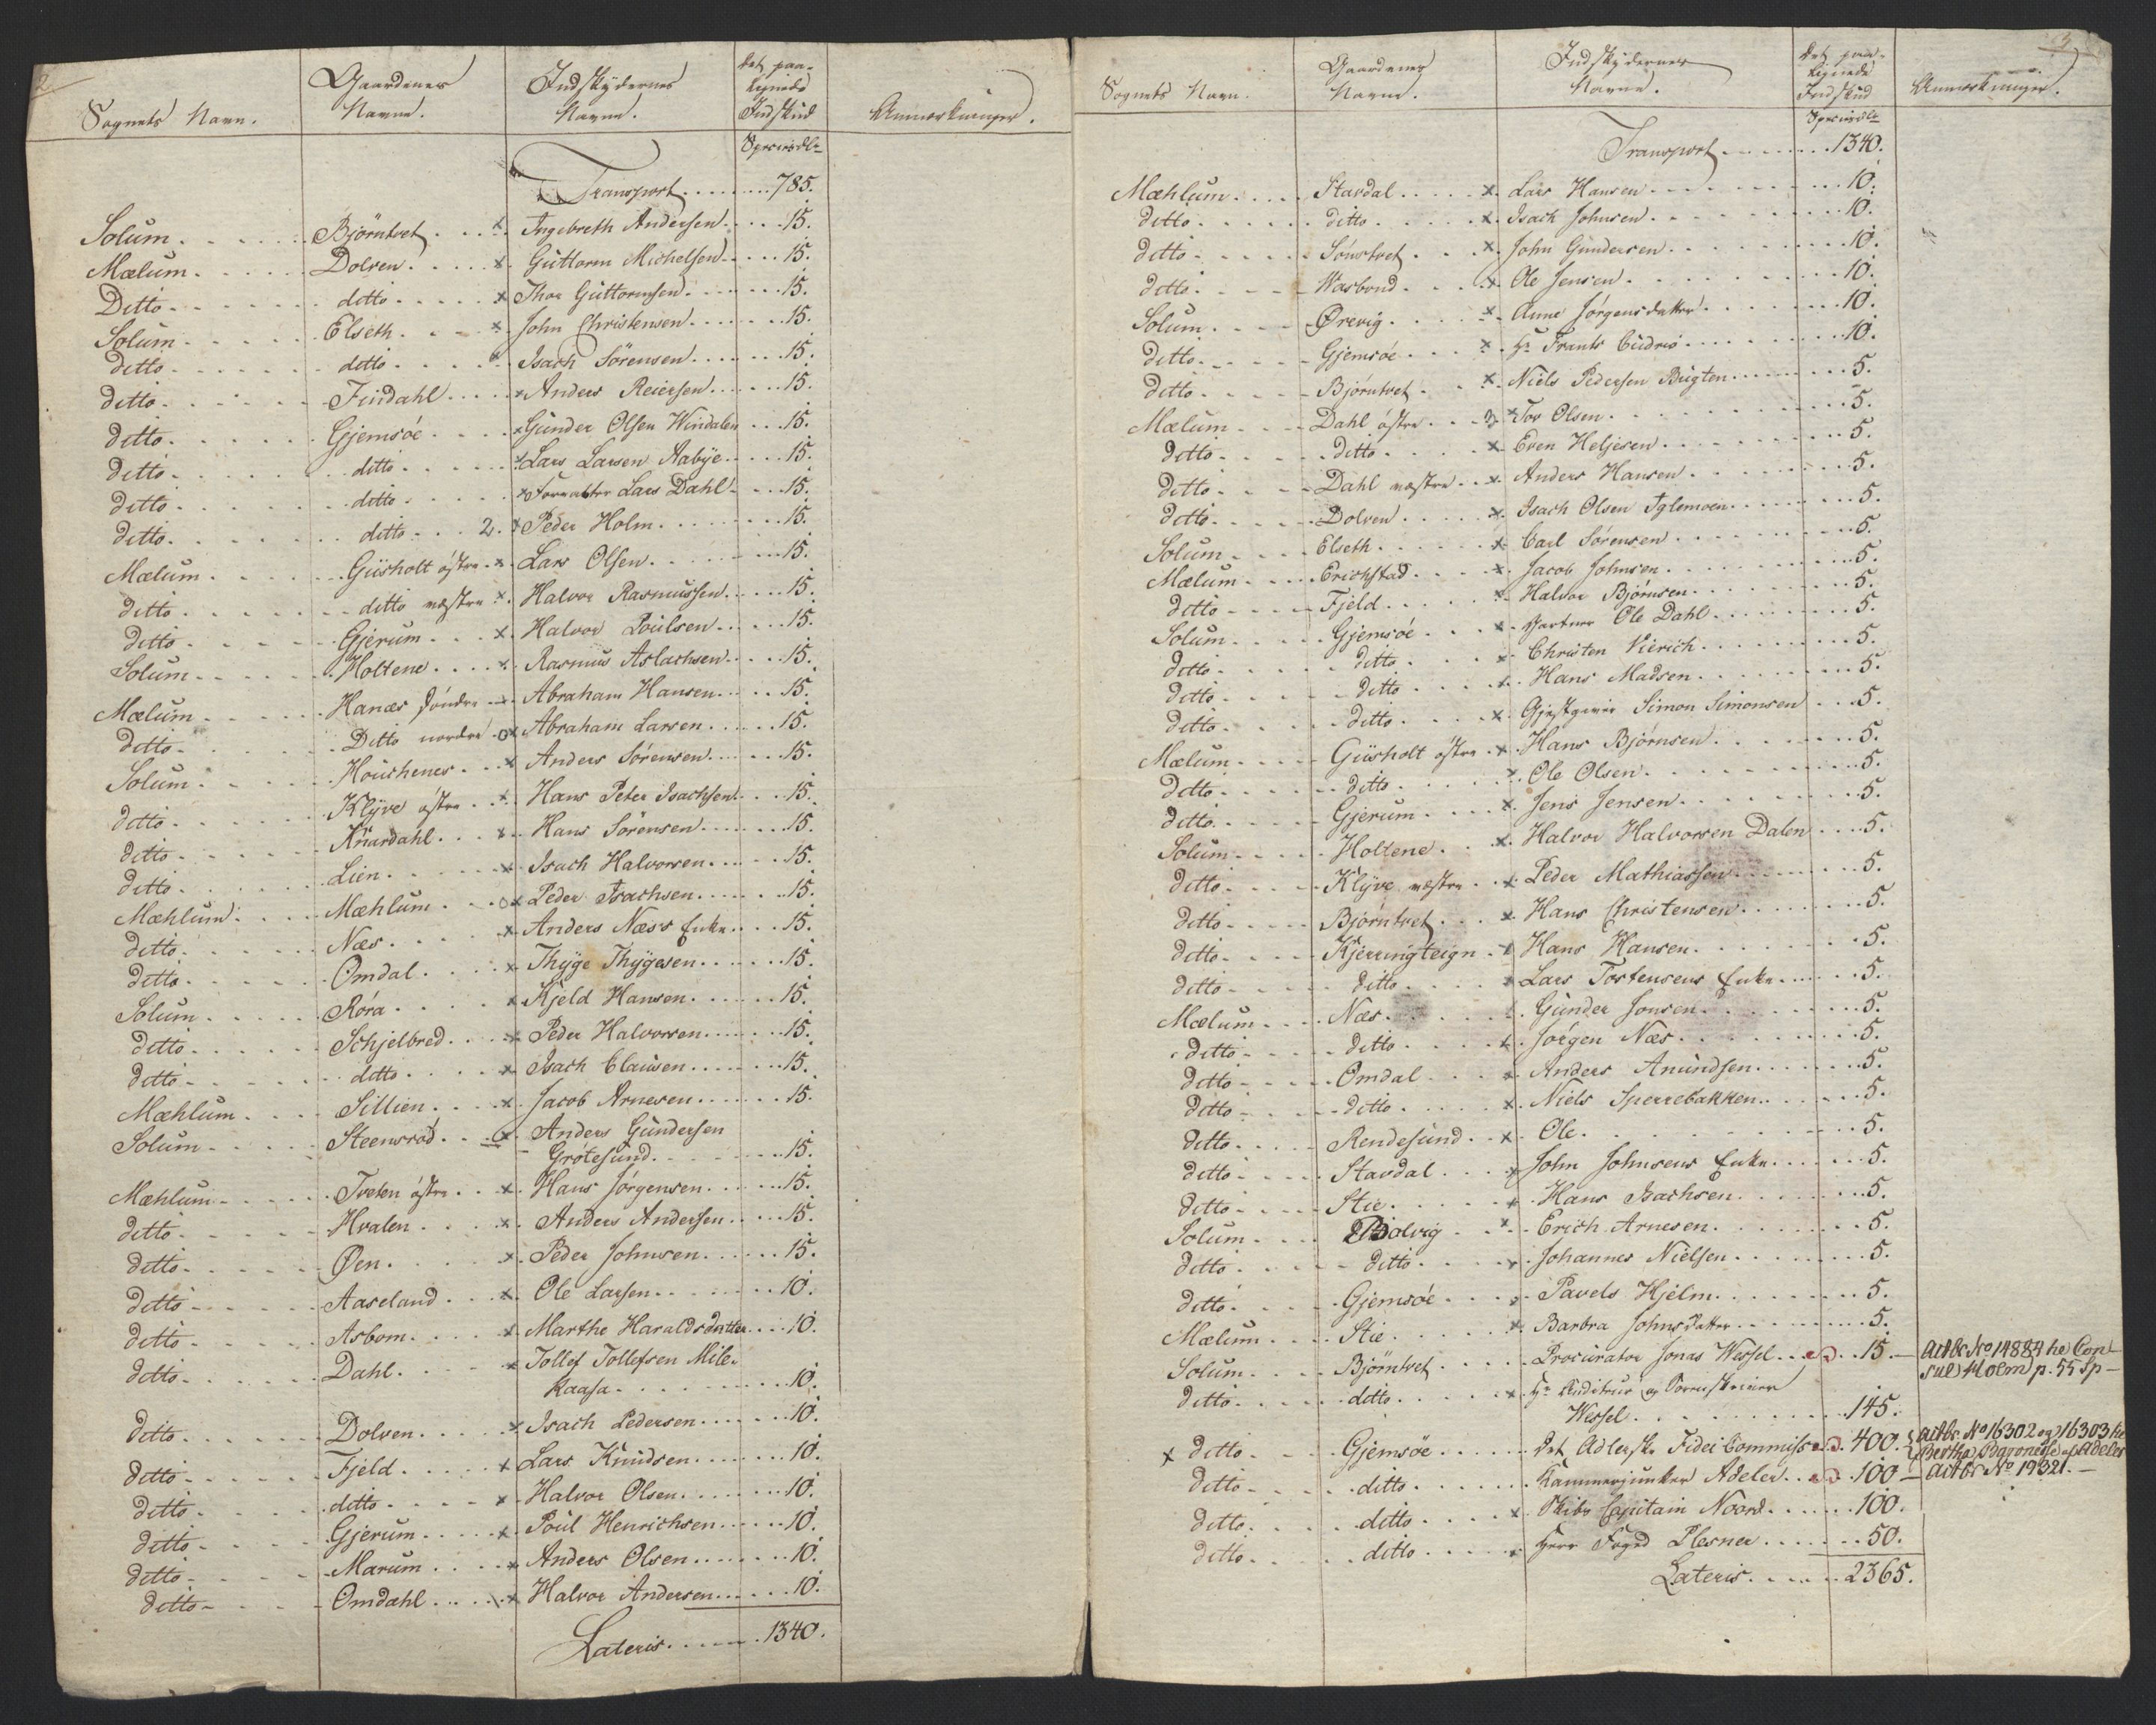 2
Sognets Navn. Gaardenes Navne. Indskydernes Navne. Det paalignede Indskud Anmærkninger.
Speciesdlr
Transport 785.
Solum. Björntvet x Ingebreth Andersen 15.
Mælum. Dolven x Guttorm Michelsen 15.
Ditto ditto x Thor Guttormsen 15.
Solum Elseth x John Christensen 15.
ditto ditto x Isach Sörensen 15.
ditto Findahl x Anders Reiersen 15.
ditto Gjemsöe x Gunder Olsen Windalen 15.
ditto ditto x Lars Larsen Aabye 15.
ditto ditto x Forvalter Lars Dahl 15.
ditto ditto 2. x Peder Holm 15.
Mælum Gusholt östre x Lars Olsen 15.
ditto ditto væstre x Halvor Rasmussen 15.
ditto Gjerum x Halvor Poulsen 15.
Solum Holtene x Rasmus Aslachsen 15.
Mælum Hanæs söndre x Abraham Hansen 15.
ditto Ditto nordre o x Abraham Larsen 15.
Solum Houchenes x Anders Sörensen 15.
ditto Klyve östre x Hans Peter Isachsen 15.
ditto Knardahl x Hans Sörensen 15.
ditto Lien x Isach Halvorsen 15.
Mæhlum Mæhlum o x Peder Isachsen 15.
ditto Næs x Anders Næss Enke 15.
ditto Omdal x Thyge Thygesen 15.
Solum Röra x Kjeld Hansen 15.
ditto Schjelbred x Peder Halvorsen 15.
ditto ditto x Isach Clausen 15.
Mæhlum Sillien x Jacob Arnesen 15.
Solum Steensröd x Anders Gundersen
Grötesund 15.
Mæhlum Tveten östre x Hans Jörgensen 15.
ditto Hvalen x Anders Andersen 15.
ditto Øen x Peder Johnsen 15.
ditto Aaseland x Ole Larsen 10.
ditto Asbom x Marthe Haraldsdatter 10.
ditto Dahl x Tollef Tollefsen Mile-
kaasa 10.
ditto Dolven x Isach Pedersen 10.
ditto Fjeld x Lars Knudsen 10.
ditto ditto x Halvor Olsen 10.
ditto Gjerum x Poul Henrichsen 10.
ditto Marum x Anders Olsen 10.
ditto Omdahl x Halvor Andersen 10.
Lateris 1340.
3
Sognets Navn. Gaardenes Navne. Indskydernes Navne. Det paalignede Indskud Anmærkninger.
Speciesdlr
Transport 1340.
Mæhlum Stavdal x Lars Hansen 10.
ditto ditto x Isach Johnsen 10.
ditto Sönstvet x John Gundersen 10.
ditto Wasbond x Ole Jensen 10.
Solum Ørevig x Anne Jörgensdatter 10.
ditto Gjemsöe x Hr Frants Cudrio 10.
ditto Björntvet x Niels Pedersen Bugten 5.
Mælum Dahl östre x Tor Olsen 5.
ditto ditto x Even Heljesen 5.
ditto Dahl væstre x Anders Hansen 5.
ditto Dolven x Isach Olsen Iglemoen 5.
Solum Elseth x Carl Sörensen 5.
Mælum Erichstad x Jacob Johnsen 5.
ditto Fjeld x Halvor Björnsen 5.
Solum Gjemsöe x Gartner Ole Dahl 5.
ditto ditto x Christen Vierich 5.
ditto ditto x Hans Madsen 5.
ditto ditto x Gjestgiver Simon Simonsen 5.
Mælum Gusholt östre x Hans Björnsen 5.
ditto ditto x Ole Olsen 5.
ditto Gjerum x Jens Jensen 5.
Solum Holtene x Halvor Halvorsen Dalen 5.
ditto Klyve væstre x Peder Mathiassen 5.
ditto Björntvet x Hans Christensen 5.
ditto Kjerringteign x Hans Hansen 5.
ditto ditto x Lars Tostensens Enke 5.
Mælum Næs x Gunder Jonsen 5.
ditto ditto x Jörgen Næs 5.
ditto Omdal x Anders Anundsen 5.
ditto ditto x Niels Sperrebakken 5.
ditto Rendesund x Ole 5.
ditto Stavdal x John Johnsens Enke 5.
ditto Stie x Hans Isachsen 5.
Solum Bolvig x Erich Arnesen 5.
ditto ditto x Johannes Nielsen 5.
ditto Gjemsöe x Pavels Hjelm 5.
Mælum Stie x Barbra Johnsdatter 5.
Solum Björntvet Procurator Jonas Wessel 15. — Actbr. No 14884 he Con-
sul Holm p. 55 Sp —
ditto ditto x Hr Auditeur og Sorenskriver
Wessel 145.
x ditto Gjemsöe Det Adlerske Fidei Commiss 400. Actbr. No 16302 og 16303 he
ditto ditto Kammerjunker Adeler 100 — Actbr No 19321. —
ditto ditto x Skibs Capitain Noord 100.
ditto ditto x Herr Foged Plesner 50.
Lateris 2365.